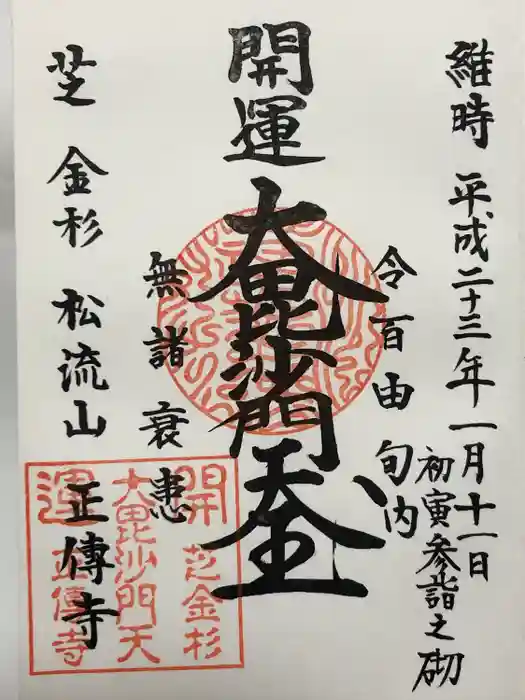 維時 平成二十三年一月十一日
初寅参詣之砌
令百由旬内
開運大毘沙門天王
無諸衰患
芝 金杉 松流山 正傳寺
開 芝金杉
大毘沙門天
運 正傳寺